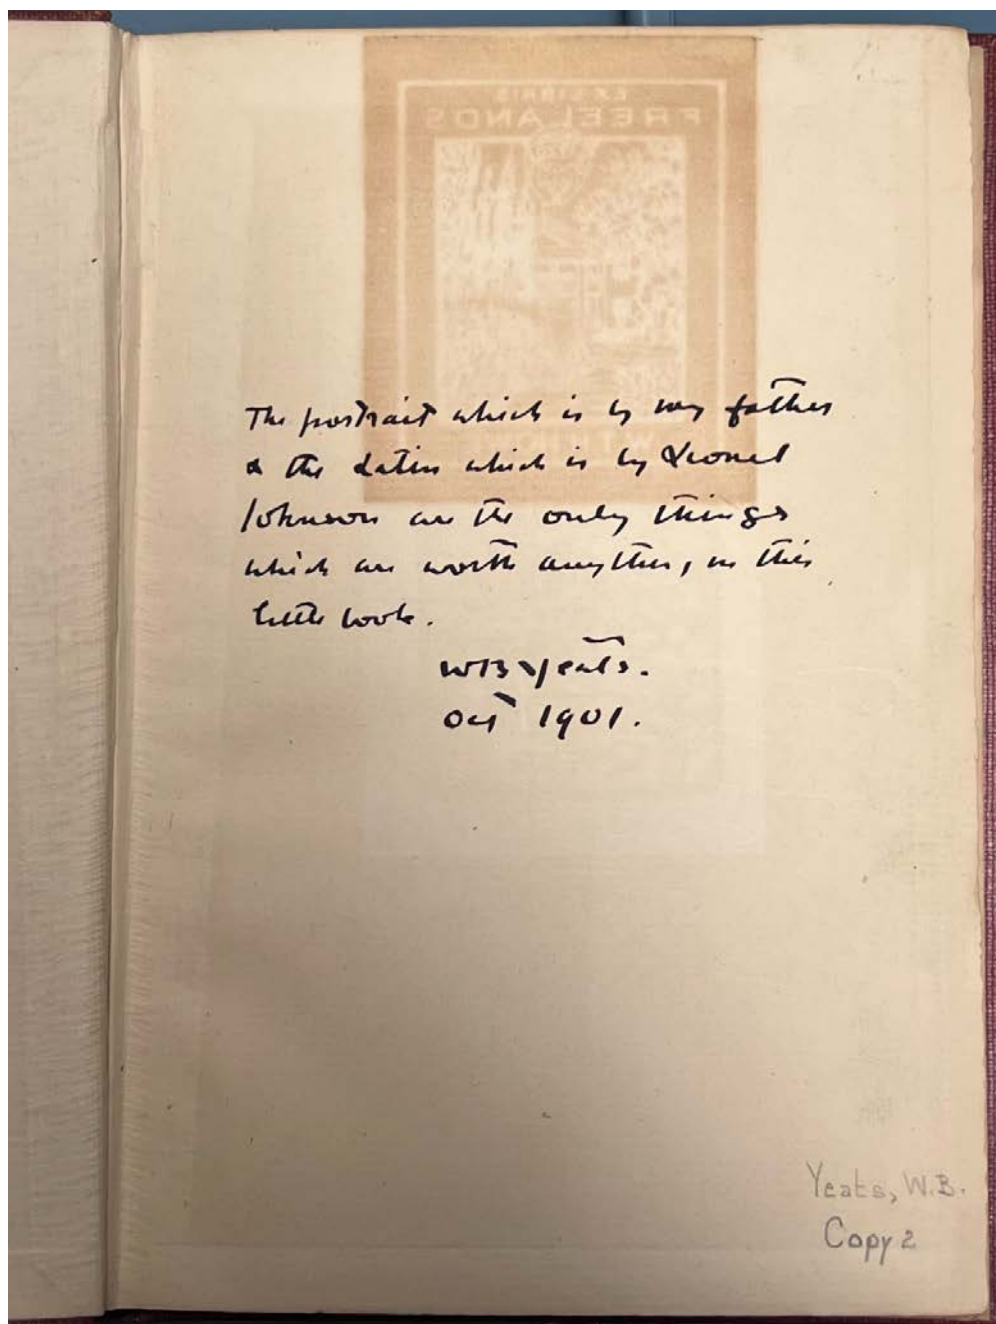 EX LIBRIS
FREELANDS
The portrait which is by my father
& the Latin which is by Lionel
Johnson are the only things
which are worth anything, in this
little book.
WB Yeats.
Oct 1901.
Yeats, W.B.
Copy 2